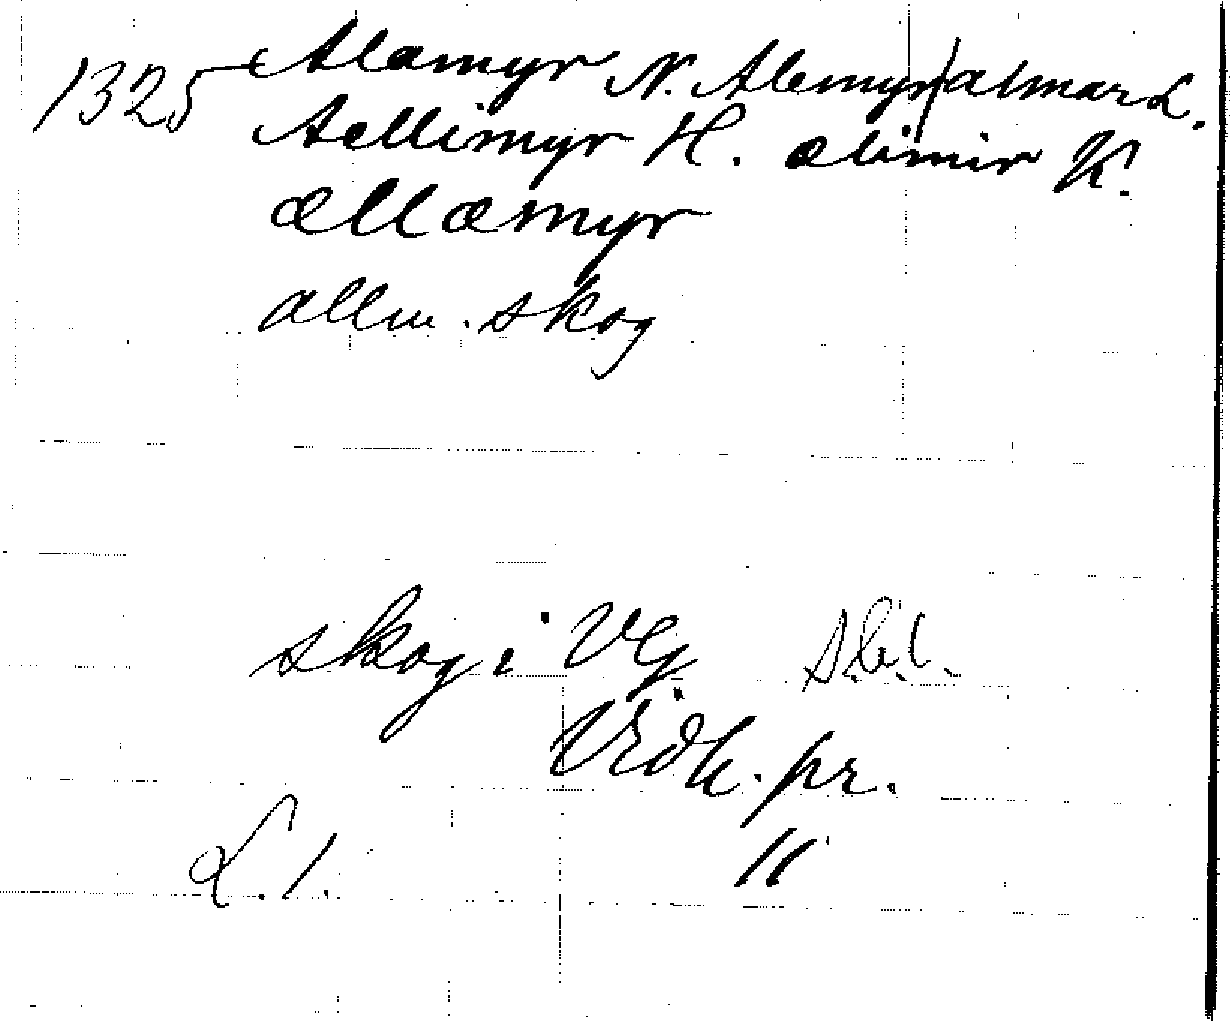 1325 Alamyr N. Alemyr/almar L.
Aellimyr H. ælimir K.
ællæmyr
allm. skog
skog i Vg
Vidh. pr.
11
L. 1.